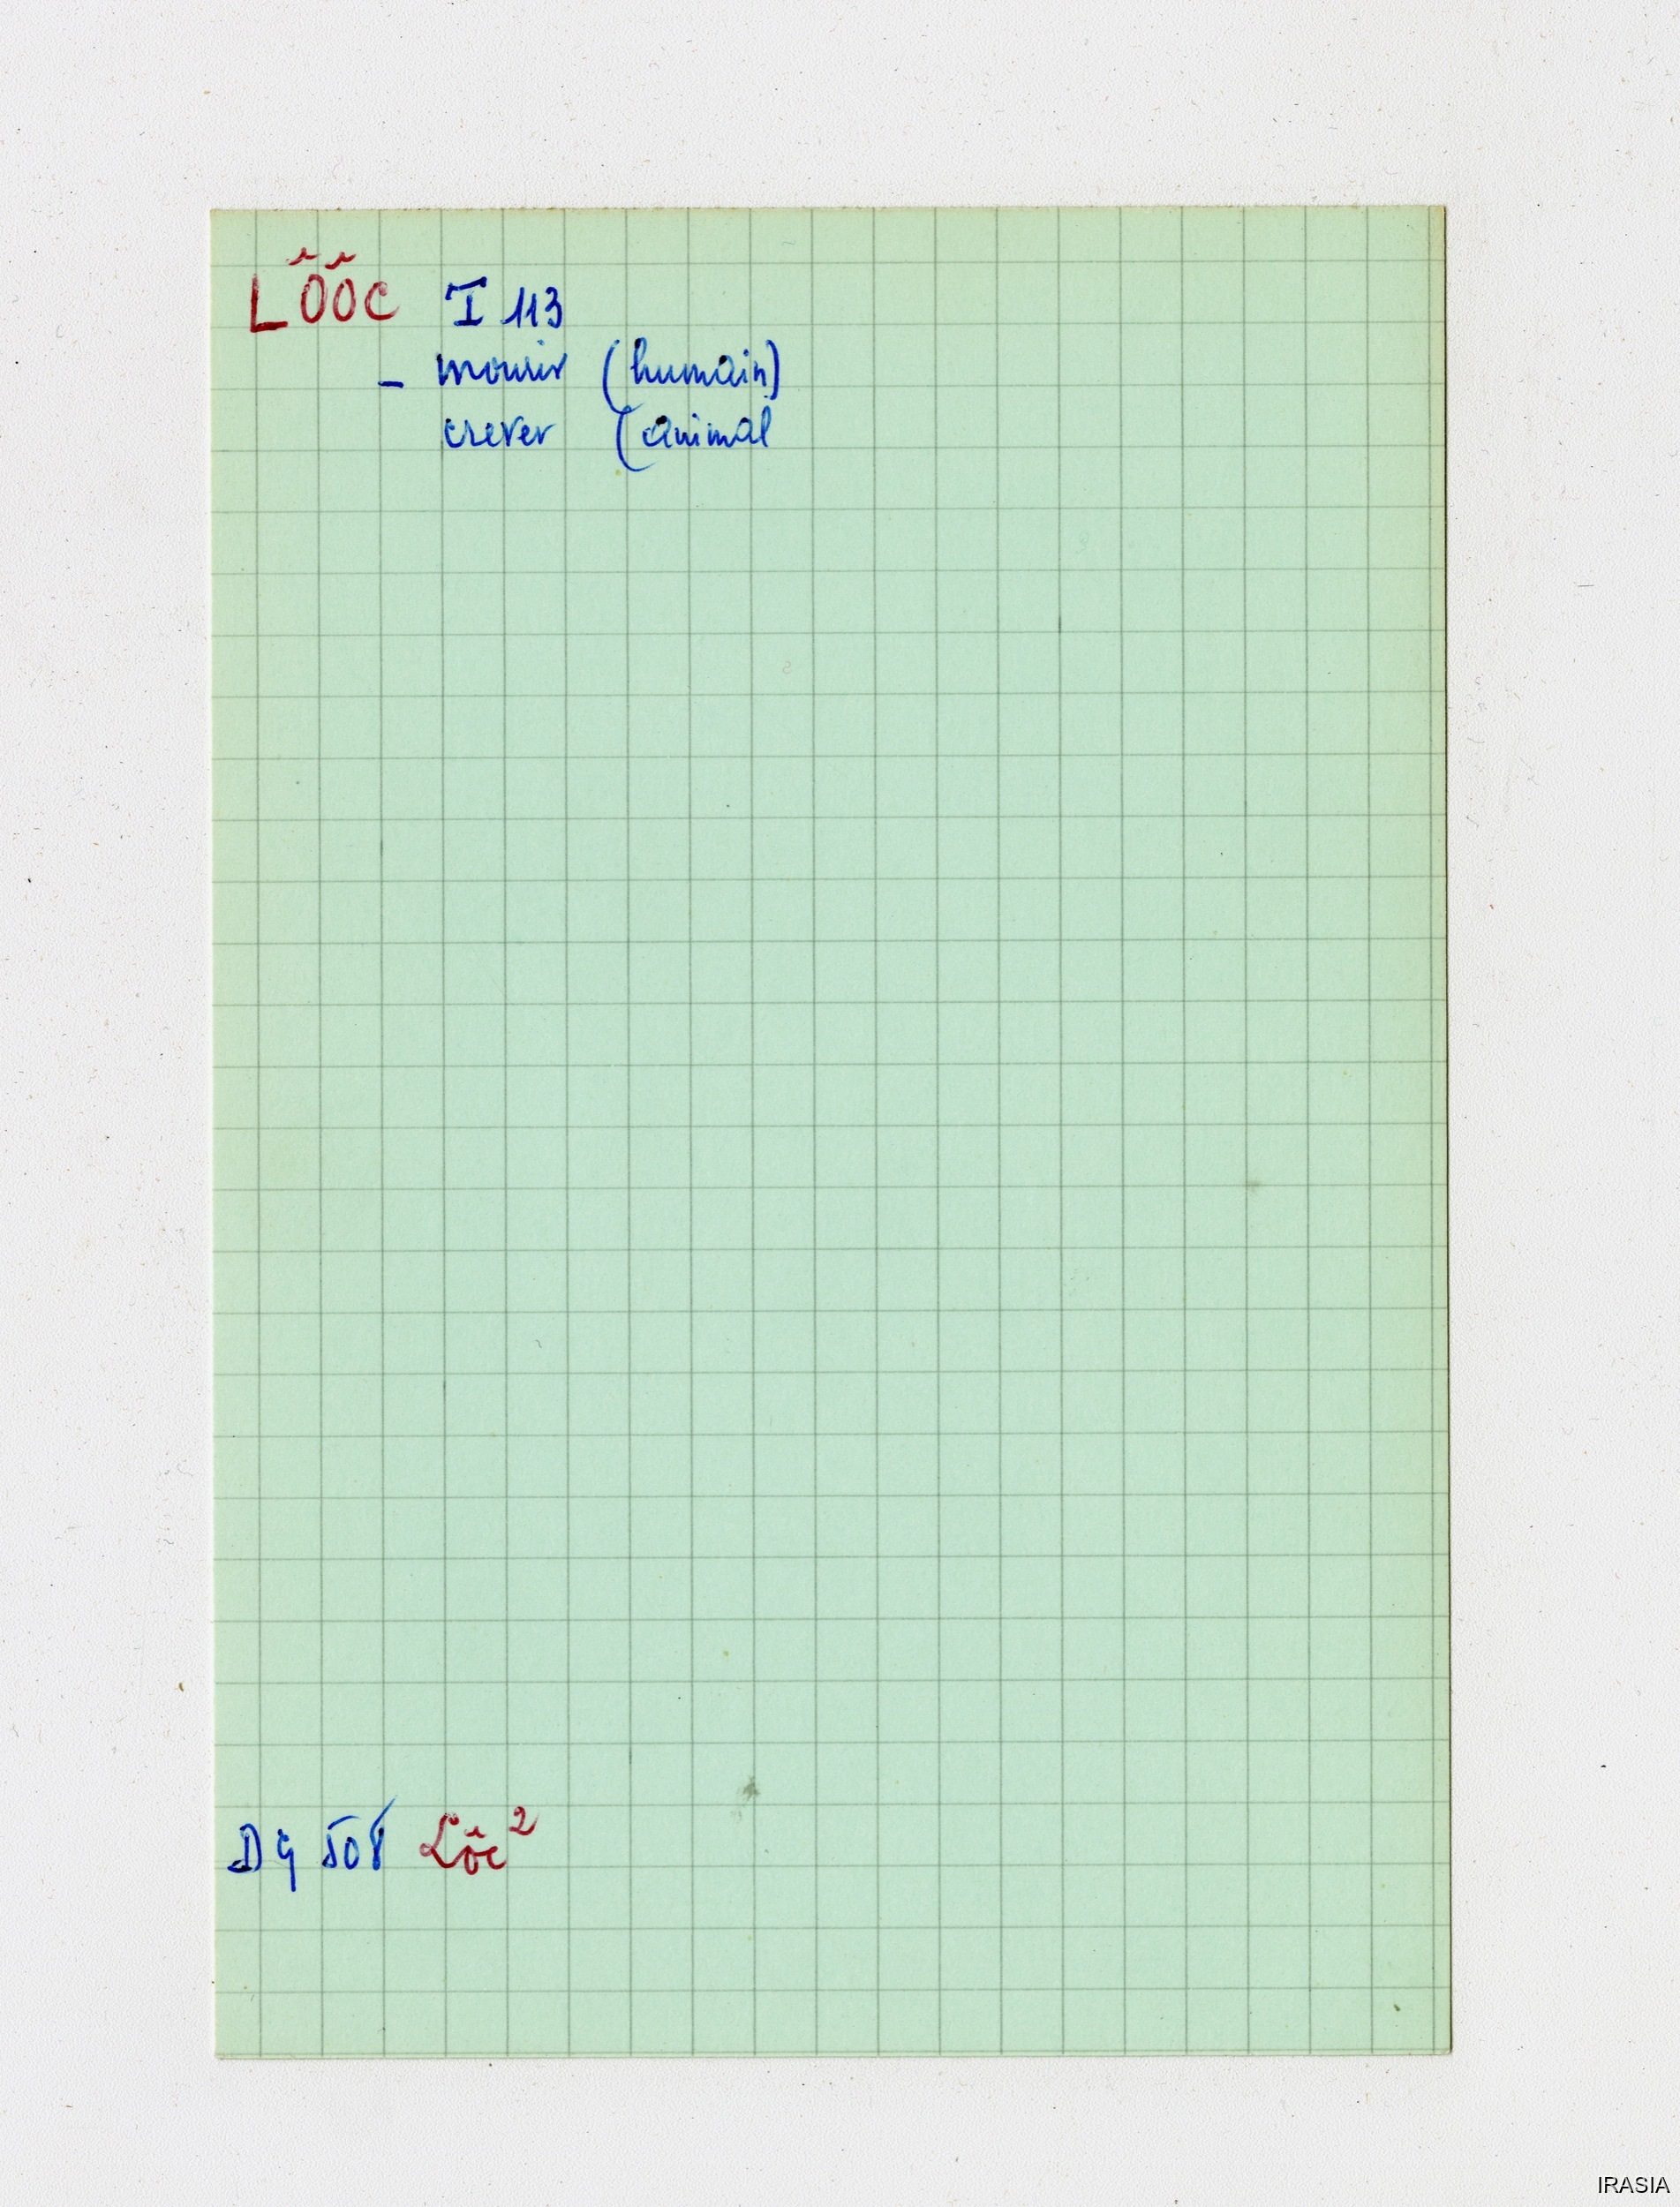 LÔÔC I 113
– mourir (humain)
crever (animal
Dg 508 Lôc²
IRASIA